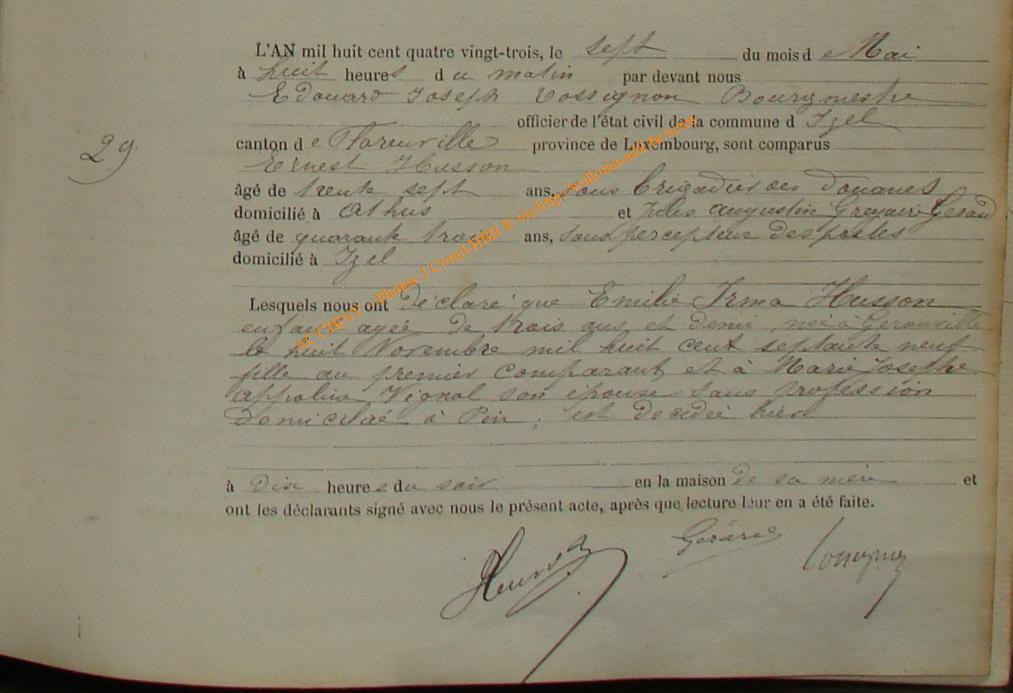 L'AN mil huit cent quatre vingt-trois, le sept du mois d e Mai
à huit heures d u matin par devant nous
Edouard Joseph Rossignon Bourgmestre
officier de l'état civil de la commune d Izel
29
canton d e Florenville province de Luxembourg, sont comparus
Ernest Husson
âgé de trente sept ans, sous brigadier des douanes
domicilié à Athus et Jules Augustin Grégoire Gérard
âgé de quarante trois ans, sous percepteur des postes
domicilié à Izel
Lesquels nous ont déclaré que Emilie Irma Husson
enfant agée de trois ans et demi, né à Gerouville
le huit Novembre mil huit cent septante neuf
fille du premier comparant et à Marie Josephe
appoline Vignol son épouse sans profession
domicilié à Pin, est décédée hier
à dix heures du soir en la maison de sa mère et
ont les déclarants signé avec nous le présent acte, après que lecture leur en a été faite.
Husson Gérard